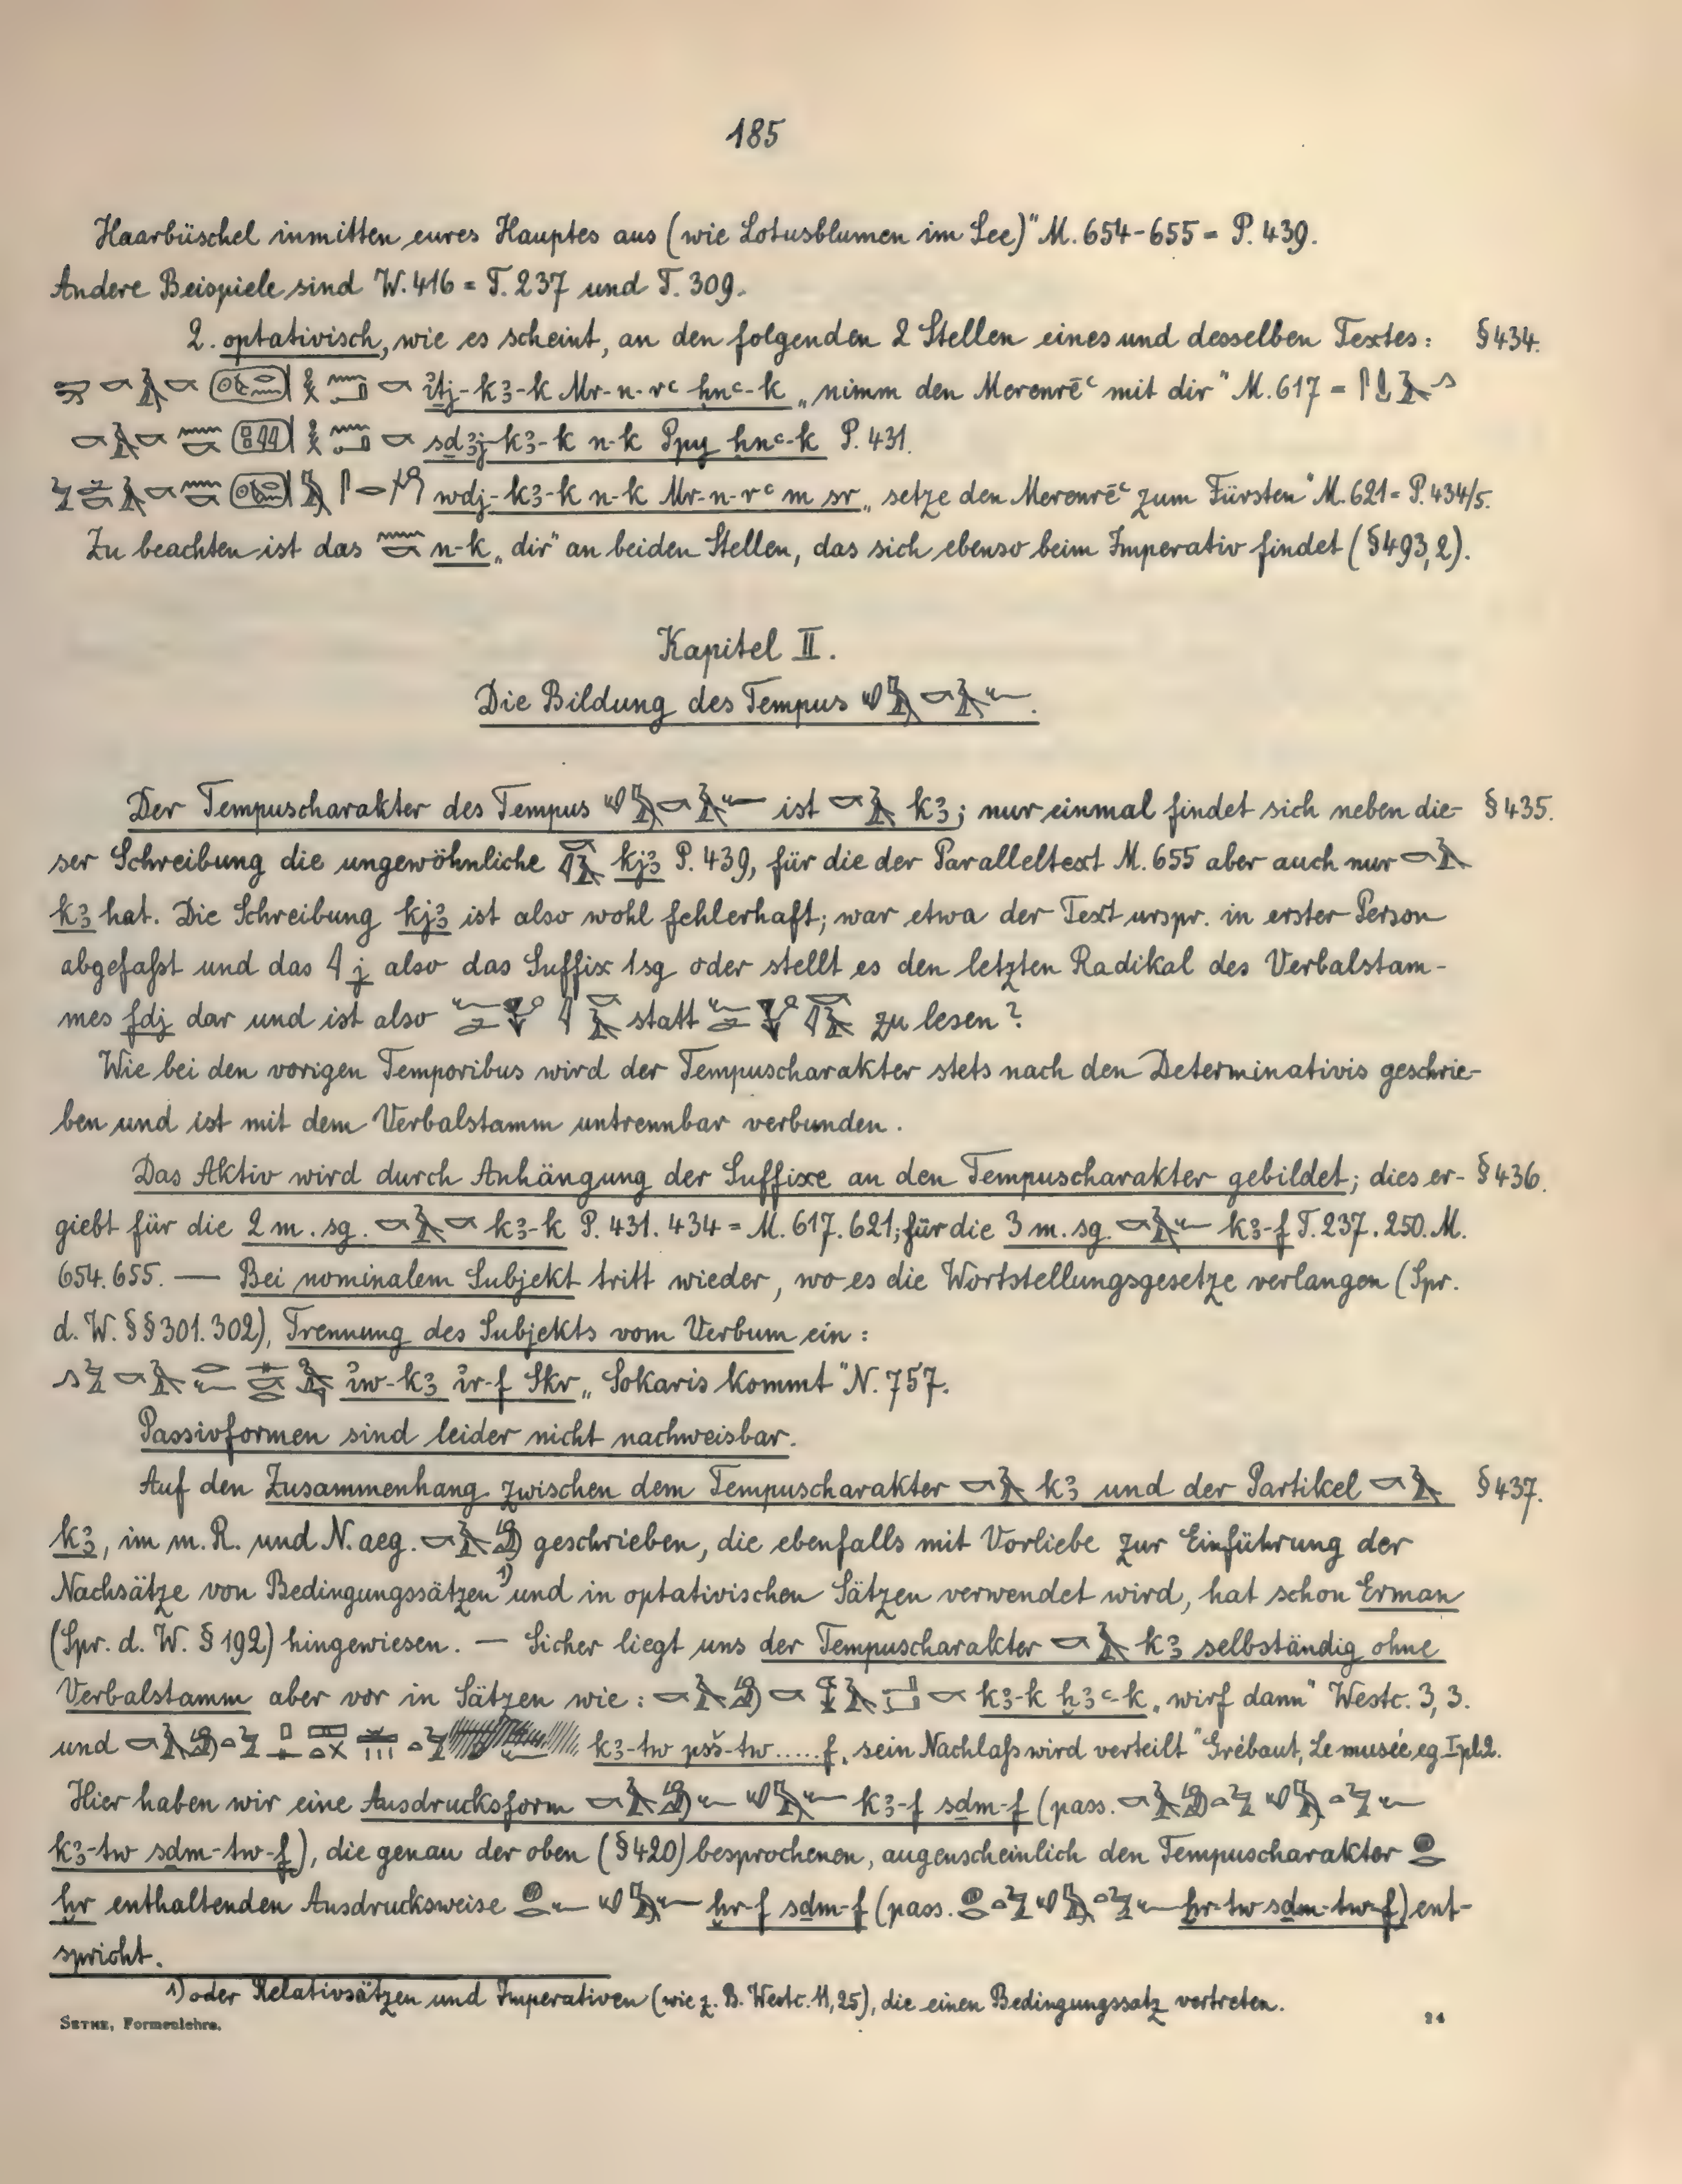 185
Haarbüschel inmitten eures Hauptes aus (wie Lotusblumen im See)" M. 654-655 = P. 439.
Andere Beispiele sind W. 416 = T. 237 und T. 309.
2. optativisch, wie es scheint, an den folgenden 2 Stellen eines und desselben Textes: § 434.
ỉṯj-kꜣ-k Mr-n-rꜥ ḥnꜥ-k „nimm den Merenrēꜥ mit dir" M. 617 =
sdꜣj-kꜣ-k n-k Ppy ḥnꜥ-k P. 431.
wdj-kꜣ-k n-k Mr-n-rꜥ m sr „setze den Merenrēꜥ zum Fürsten" M. 621 = P. 434/5.
Zu beachten ist das n-k „dir" an beiden Stellen, das sich ebenso beim Imperativ findet (§ 493, 2).
Kapitel II.
Die Bildung des Tempus
Der Tempuscharakter des Tempus ist kꜣ; nur einmal findet sich neben die- § 435.
ser Schreibung die ungewöhnliche kjꜣ P. 439, für die der Paralleltext M. 655 aber auch nur
kꜣ hat. Die Schreibung kjꜣ ist also wohl fehlerhaft; war etwa der Text urspr. in erster Person
abgefaßt und das j also das Suffix 1 sg oder stellt es den letzten Radikal des Verbalstam-
mes fdj dar und ist also statt zu lesen?
Wie bei den vorigen Temporibus wird der Tempuscharakter stets nach den Determinativis geschrie-
ben und ist mit dem Verbalstamm untrennbar verbunden.
Das Aktiv wird durch Anhängung der Suffixe an den Tempuscharakter gebildet; dies er- § 436.
giebt für die 2 m. sg. kꜣ-k P. 431. 434 = M. 617. 621; für die 3 m. sg. kꜣ-f T. 237. 250. M.
654. 655. — Bei nominalem Subjekt tritt wieder, wo es die Wortstellungsgesetze verlangen (Spr.
d. W. §§ 301. 302), Trennung des Subjekts vom Verbum ein:
ỉw-kꜣ ỉr-f Skr „Sokaris kommt" N. 757.
Passivformen sind leider nicht nachweisbar.
Auf den Zusammenhang zwischen dem Tempuscharakter kꜣ und der Partikel § 437.
kꜣ, im m. R. und N. aeg. geschrieben, die ebenfalls mit Vorliebe zur Einführung der
Nachsätze von Bedingungssätzen 1) und in optativischen Sätzen verwendet wird, hat schon Erman
(Spr. d. W. § 192) hingewiesen. — Sicher liegt uns der Tempuscharakter kꜣ selbständig ohne
Verbalstamm aber vor in Sätzen wie: kꜣ-k ḫꜣꜥ-k „wirf dann" Westc. 3, 3.
und kꜣ-tw psš-tw.....f „sein Nachlaß wird verteilt" Grébaut, Le musée eg. I pl. 2.
Hier haben wir eine Ausdrucksform kꜣ-f sḏm-f (pass.
kꜣ-tw sḏm-tw-f), die genau der oben (§ 420) besprochenen, augenscheinlich den Tempuscharakter
ḫr enthaltenden Ausdrucksweise ḫr-f sḏm-f (pass. ḫr-tw sḏm-tw-f) ent-
spricht.
1) oder Relativsätzen und Imperativen (wie z. B. Westc. 11, 25), die einen Bedingungssatz vertreten.
SETHE, Formenlehre. 24